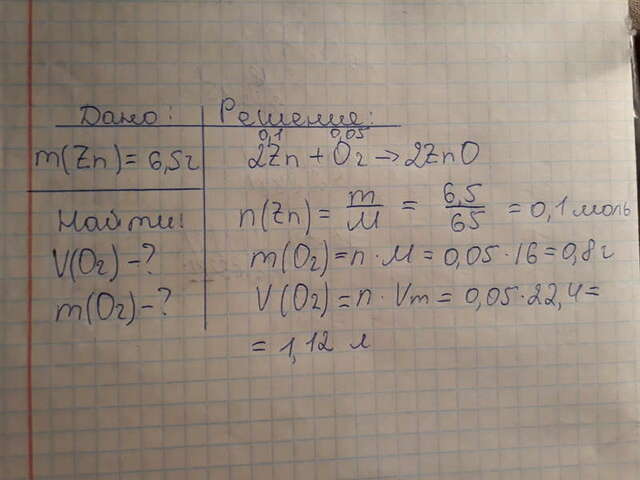 Дано:
m(Zn) = 6,5г
Найти:
V(O₂) - ?
m(O₂) - ?
Решение:
0,1 0,05
2Zn + O₂ → 2ZnO
n(Zn) = m/M = 6,5/65 = 0,1 моль
m(O₂) = n · M = 0,05 · 16 = 0,8 г
V(O₂) = n · Vm = 0,05 · 22,4 =
= 1,12 л